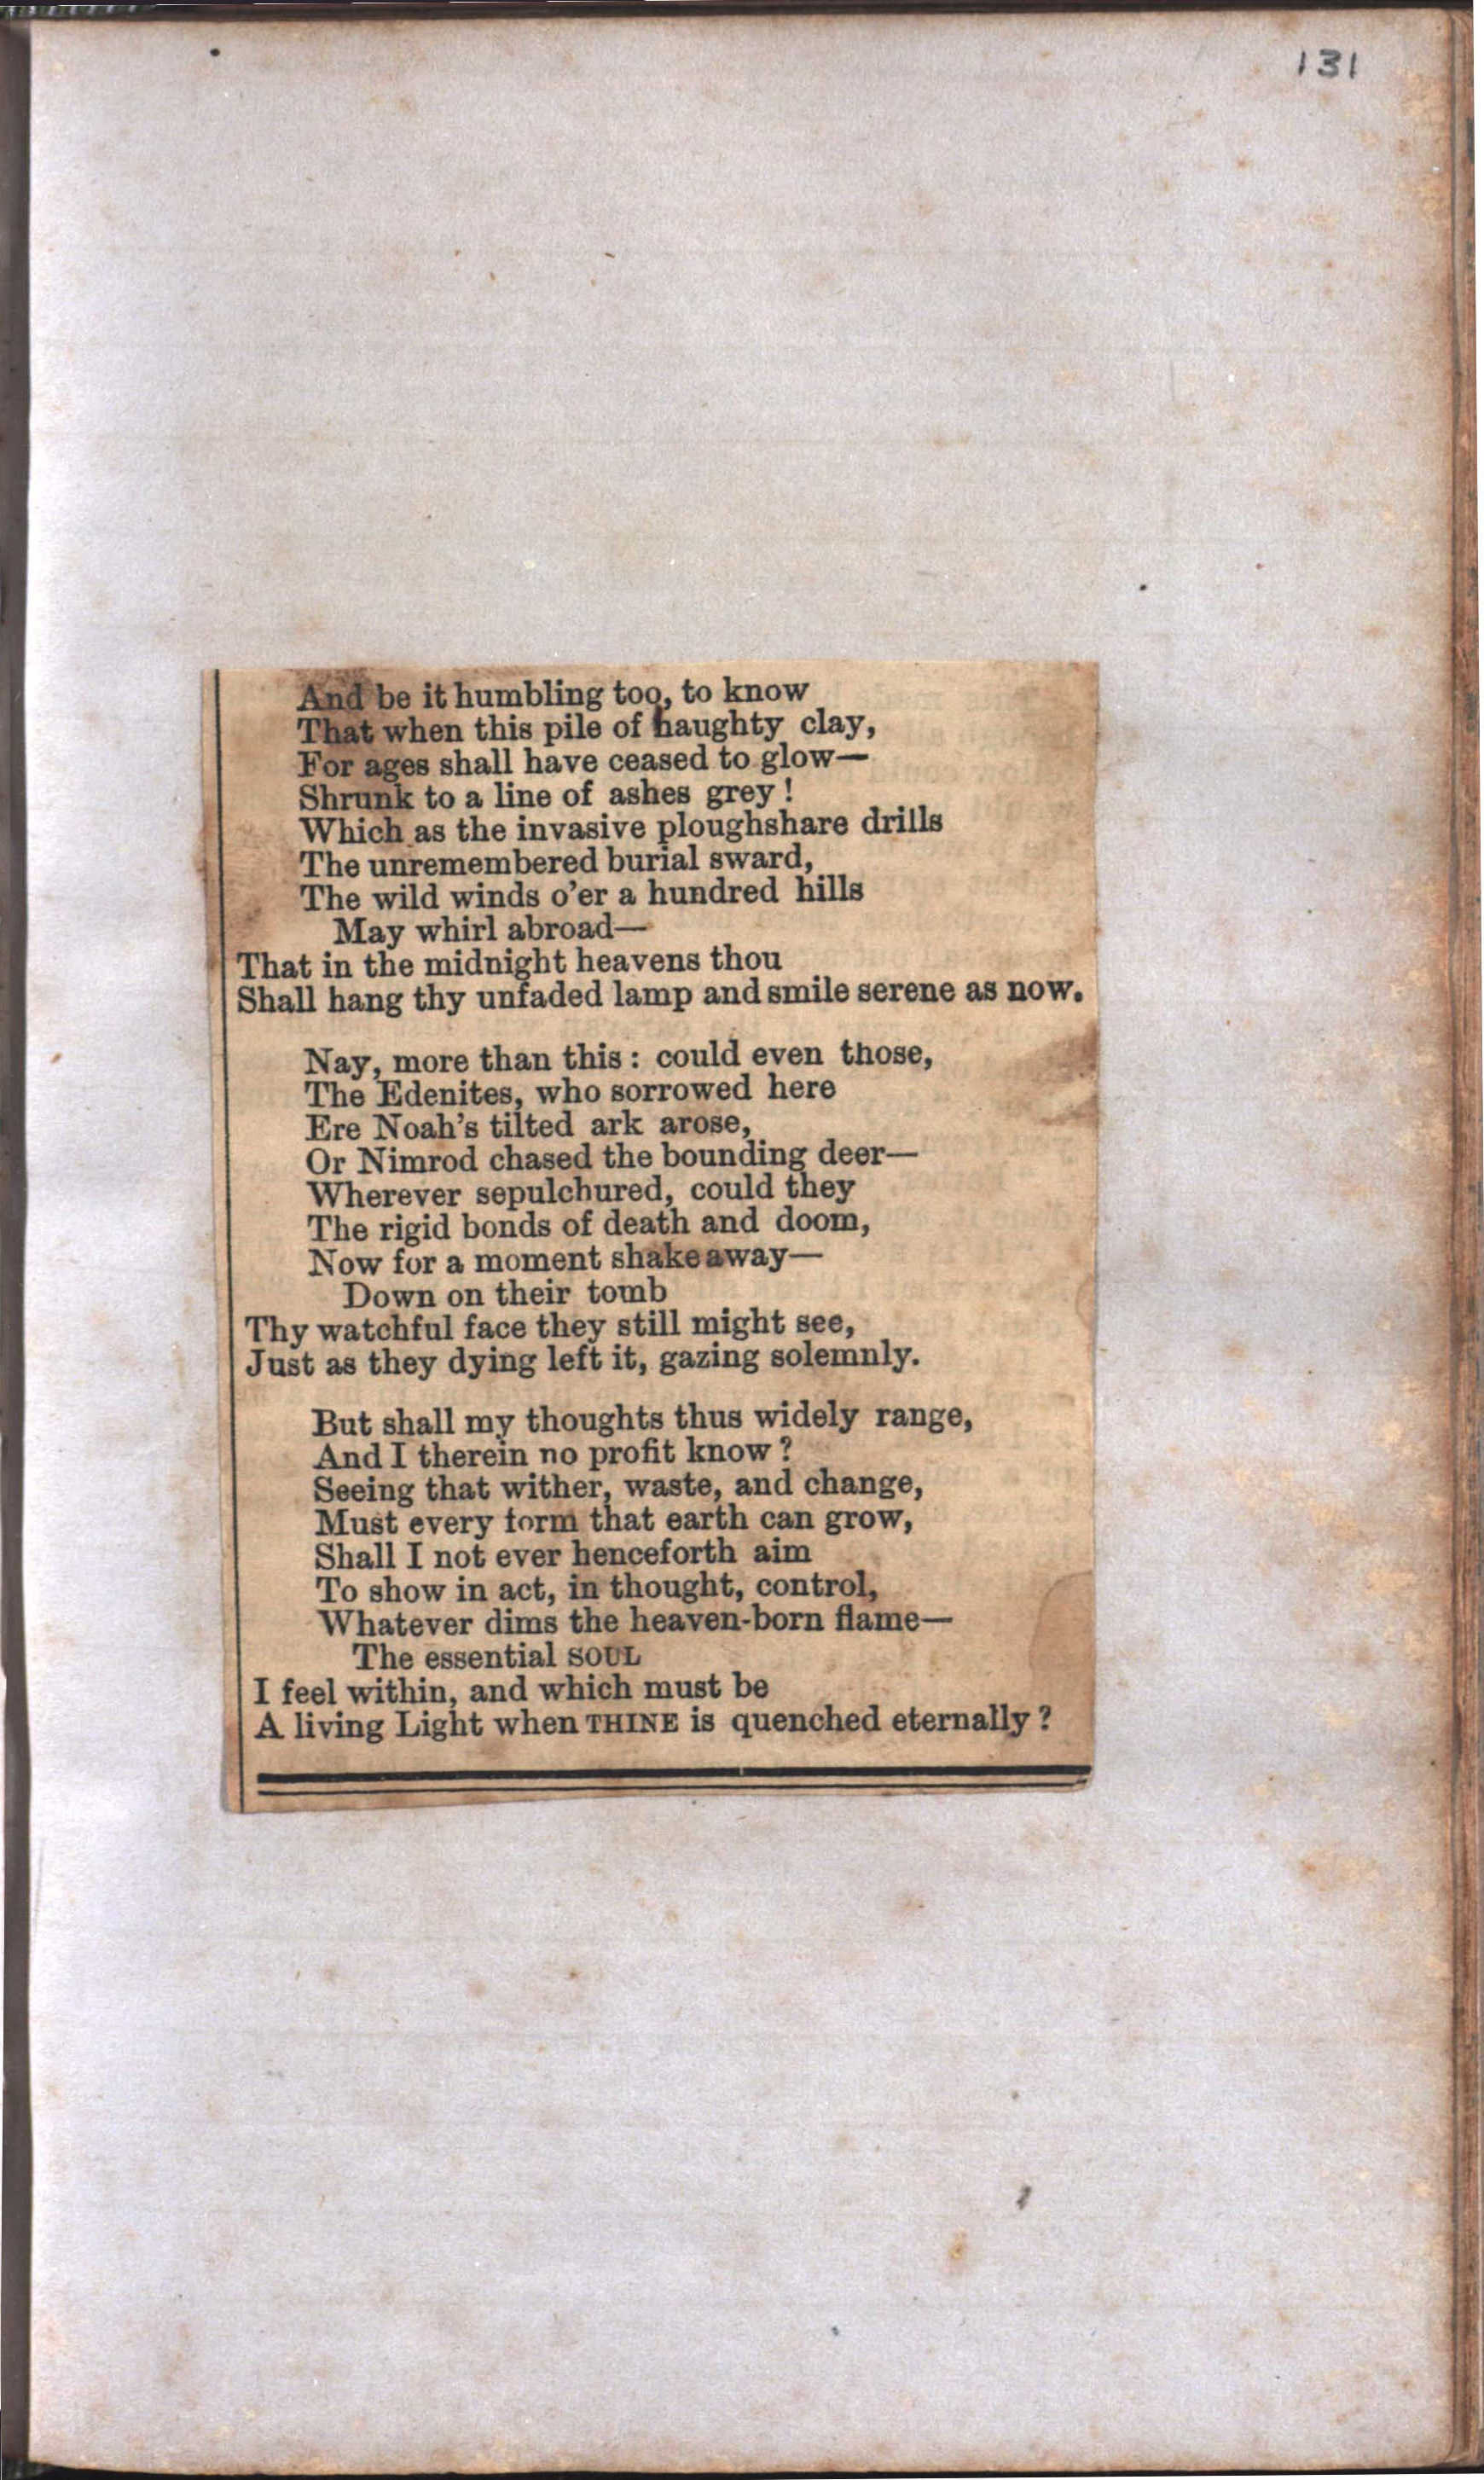 131
And be it humbling too, to know
That when this pile of haughty clay,
For ages shall have ceased to glow—
Shrunk to a line of ashes grey!
Which as the invasive ploughshare drills
The unremembered burial sward,
The wild winds o'er a hundred hills
May whirl abroad—
That in the midnight heavens thou
Shall hang thy unfaded lamp and smile serene as now.
Nay, more than this: could even those,
The Edenites, who sorrowed here
Ere Noah's tilted ark arose,
Or Nimrod chased the bounding deer—
Wherever sepulchured, could they
The rigid bonds of death and doom,
Now for a moment shake away—
Down on their tomb
Thy watchful face they still might see,
Just as they dying left it, gazing solemnly.
But shall my thoughts thus widely range,
And I therein no profit know?
Seeing that wither, waste, and change,
Must every form that earth can grow,
Shall I not ever henceforth aim
To show in act, in thought, control,
Whatever dims the heaven-born flame—
The essential SOUL
I feel within, and which must be
A living Light when THINE is quenched eternally?